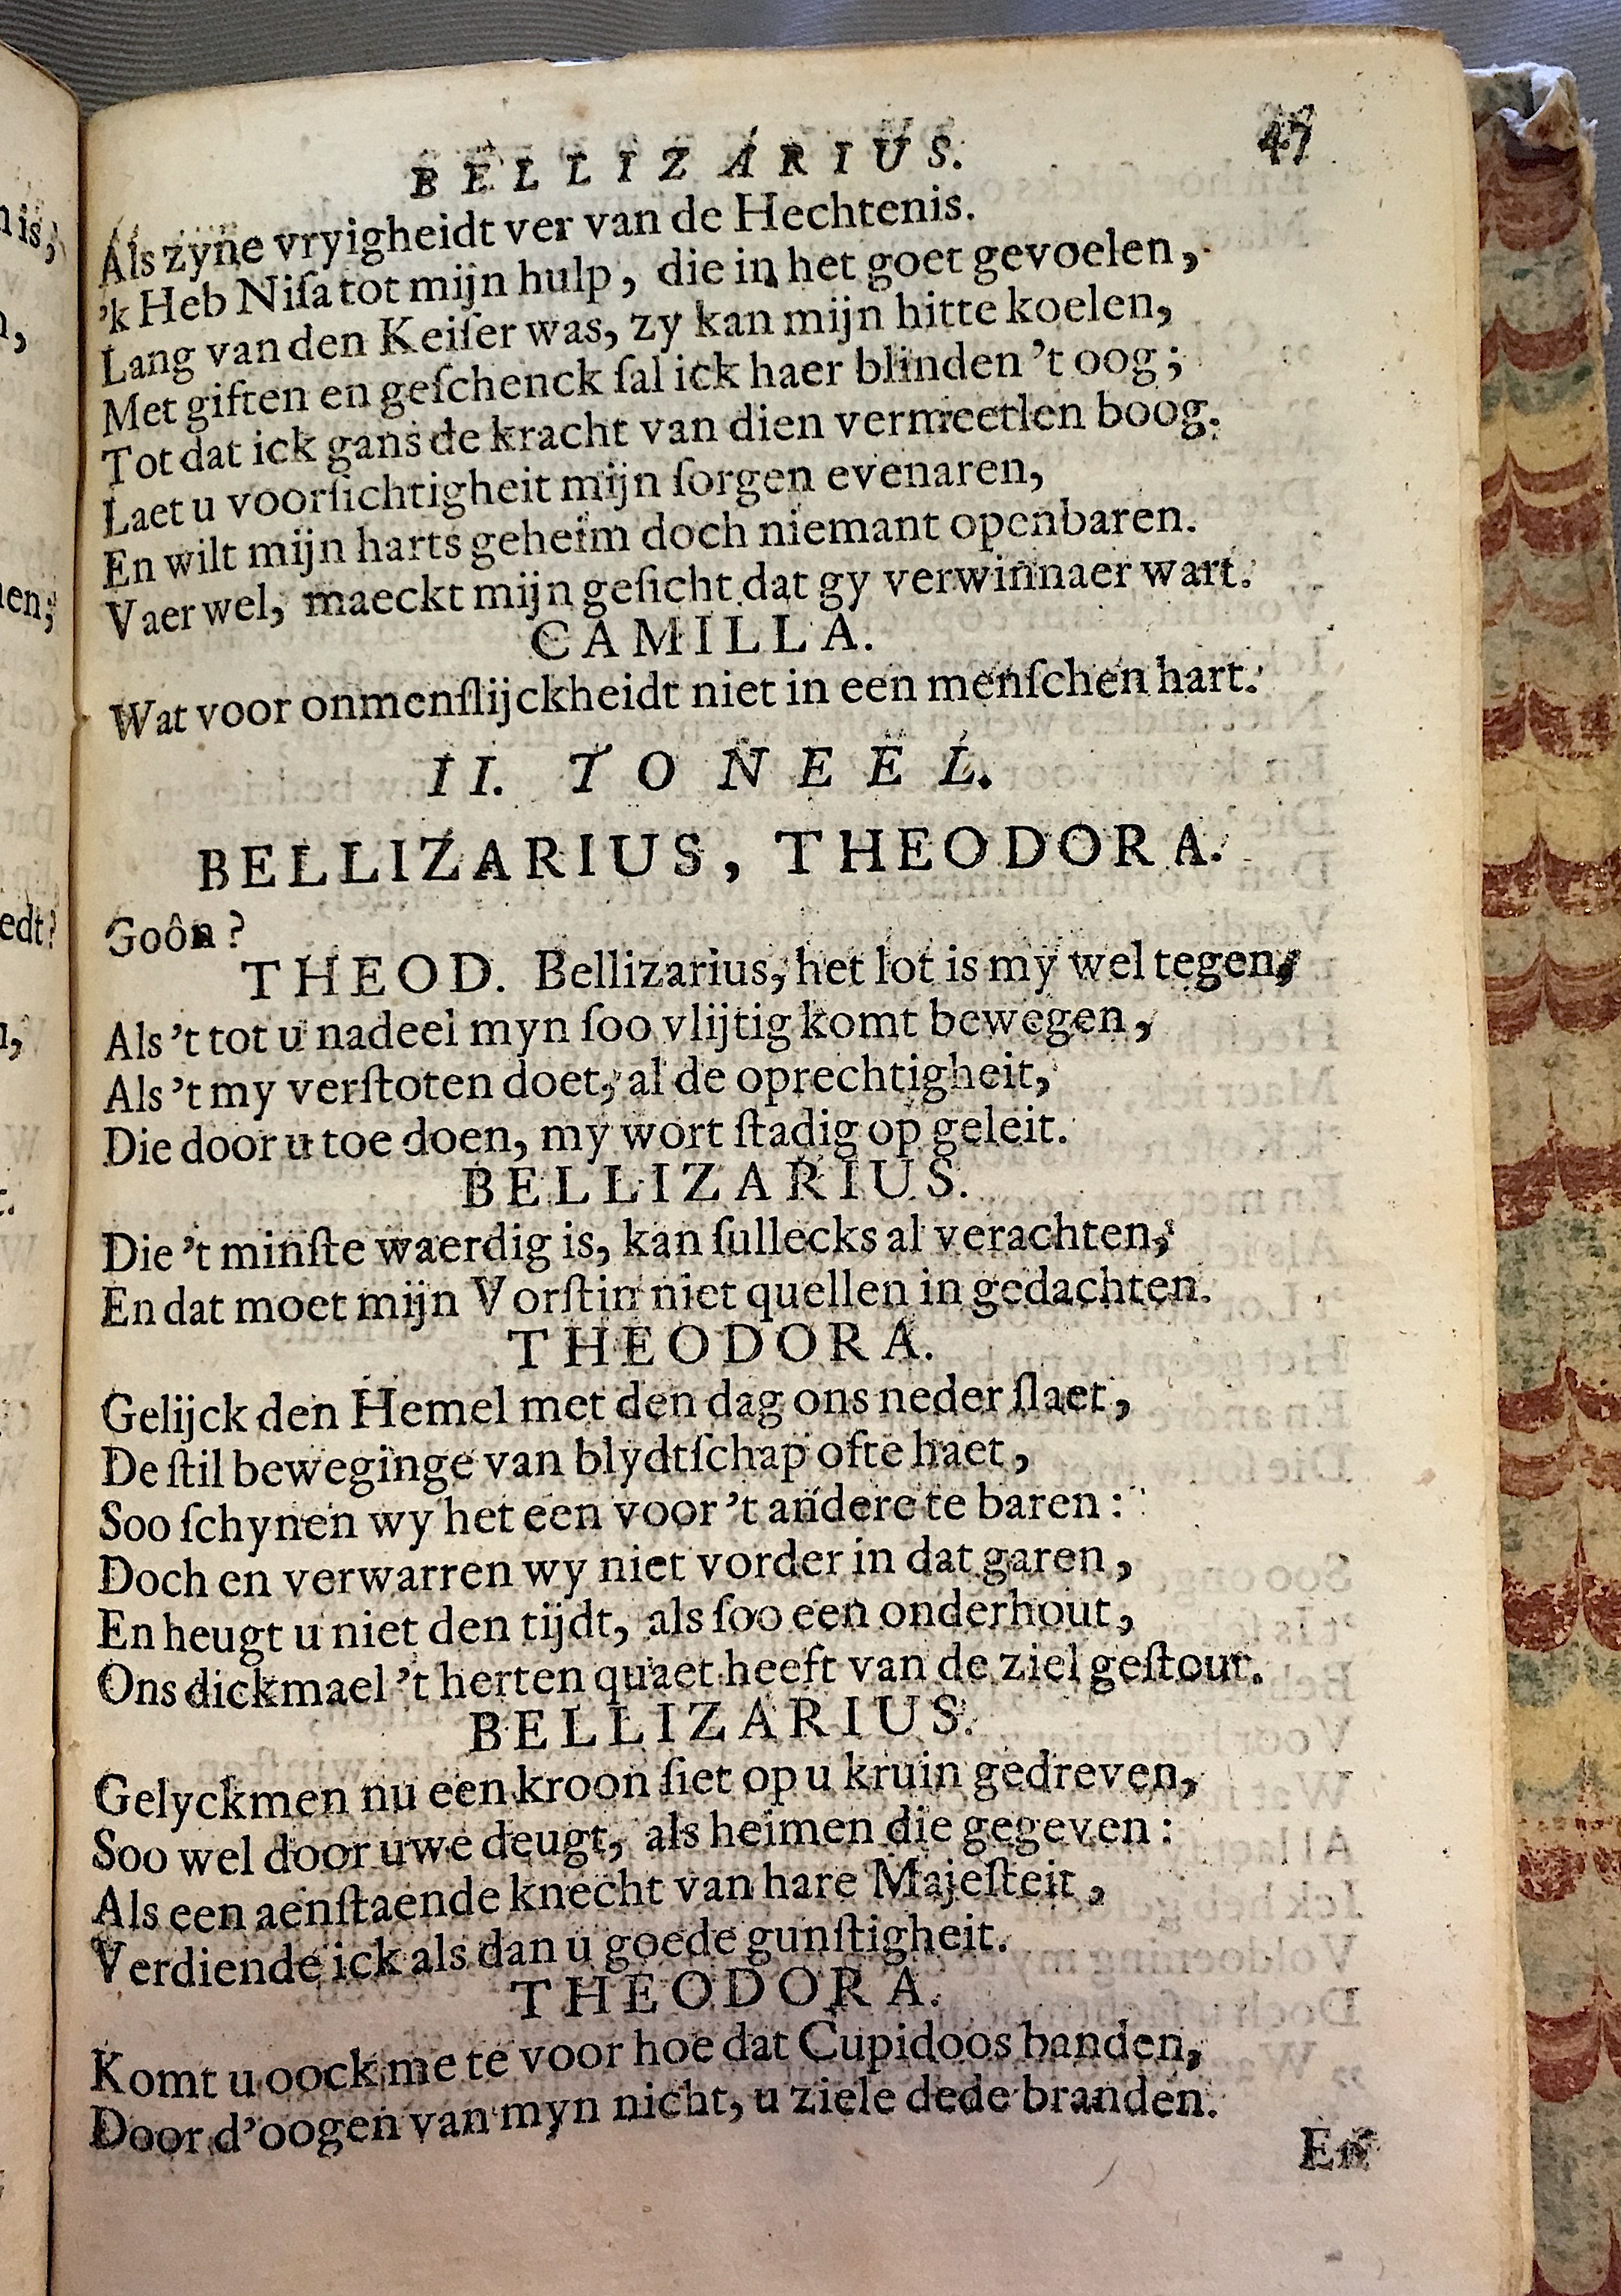 BELLIZARIUS. 47
Als zyne vryigheidt ver van de Hechtenis.
'k Heb Niſa tot mijn hulp, die in het goet gevoelen,
Lang van den Keiſer was, zy kan mijn hitte koelen,
Met giften en geſchenck ſal ick haer blinden 't oog;
Tot dat ick gans de kracht van dien vermeetlen boog.
Laet u voorſichtigheit mijn ſorgen evenaren,
En wilt mijn harts geheim doch niemant openbaren.
Vaer wel, maeckt mijn geſicht dat gy verwinnaer wart.
CAMILLA.
Wat voor onmenſlijckheidt niet in een menſchen hart.
II. TONEEL.
BELLIZARIUS, THEODORA.
Goôn?
THEOD. Bellizarius, het lot is my wel tegen,
Als 't tot u nadeel myn ſoo vlijtig komt bewegen,
Als 't my verſtoten doet, al de oprechtigheit,
Die door u toe doen, my wort ſtadig op geleit.
BELLIZARIUS.
Die 't minſte waerdig is, kan ſullecks al verachten,
En dat moet mijn Vorſtin niet quellen in gedachten.
THEODORA.
Gelijck den Hemel met den dag ons neder ſlaet,
De ſtil beweginge van blydtſchap ofte haet,
Soo ſchynen wy het een voor 't andere te baren:
Doch en verwarren wy niet vorder in dat garen,
En heugt u niet den tijdt, als ſoo een onderhout,
Ons dickmael 't herten quaet heeft van de ziel geſtout.
BELLIZARIUS.
Gelyckmen nu een kroon ſiet op u kruin gedreven,
Soo wel door uwe deugt, als heimen die gegeven:
Als een aenſtaende knecht van hare Majeſteit,
Verdiende ick als dan u goede gunſtigheit.
THEODORA.
Komt u oock me te voor hoe dat Cupidoos banden,
Door d'oogen van myn nicht, u ziele dede branden.
En